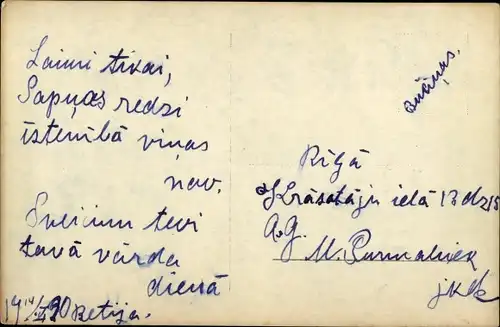 Laimi tikai,
Sapņos redzi
īstenībā viņas
nav.
Sveicam tevi
tavā vārda
dienā
Betija.
Bučiņas.
Rīgā
Krāsotāju ielā 13 dz 15
A.G.
M. Purmaliek